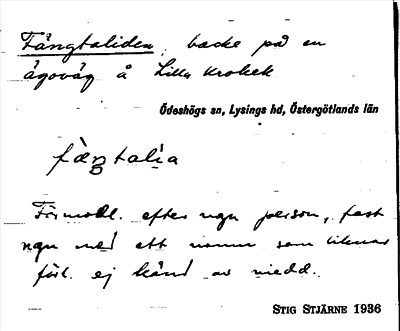 Fängtaliden, backe på en
ägoväg å Lilla Krokek
Ödeshögs sn, Lysings hd, Östergötlands län
fäŋtalia
Förmodl. efter ngn person, fast
ngn med ett namn som liknar
förl. ej känd av medd.
STIG STJÄRNE 1936